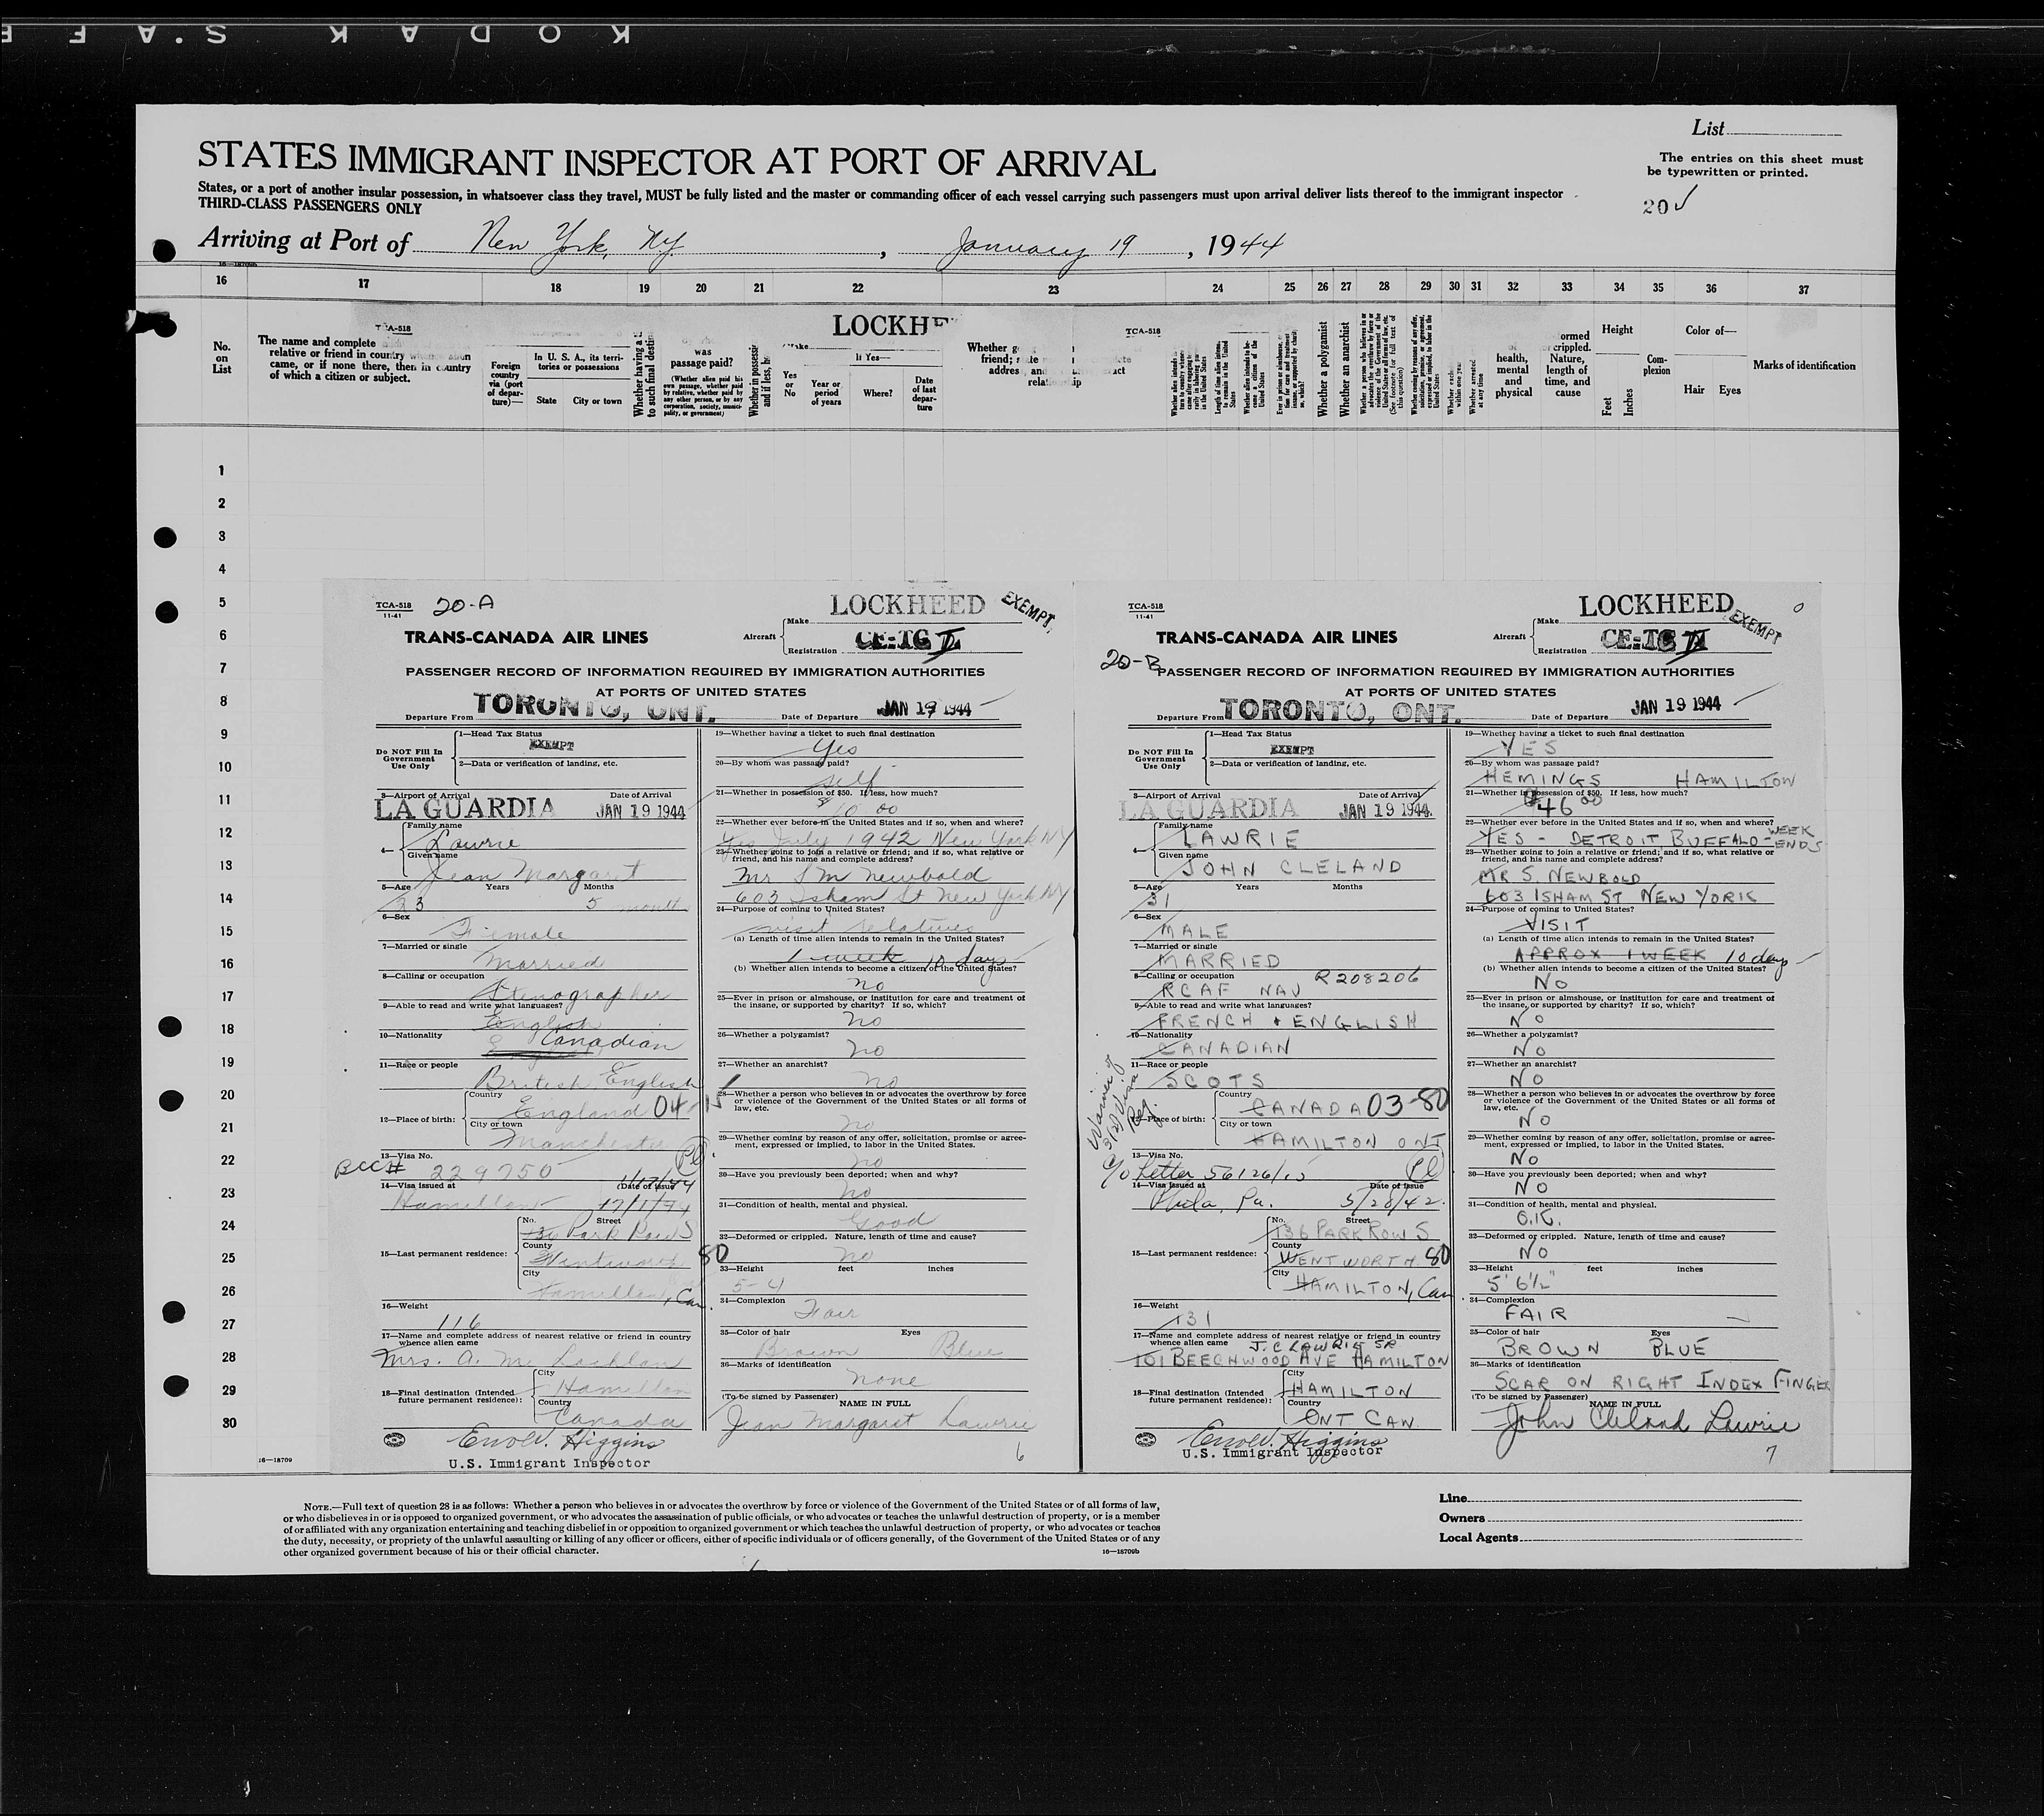 KODAK S.A F E
List
STATES IMMIGRANT INSPECTOR AT PORT OF ARRIVAL
The entries on this sheet must
be typewritten or printed.
States, or a port of another insular possession, in whatsoever class they travel, MUST be fully listed and the master or commanding officer of each vessel carrying such passengers must upon arrival deliver lists thereof to the immigrant inspector
THIRD-CLASS PASSENGERS ONLY
20
Arriving at Port of New York, N.Y. , January 19 , 1944
16 17 18 19 20 21 22 23 24 25 26 27 28 29 30 31 32 33 34 35 36 37
TCA-518
LOCKHE
TCA-518
No.
on
List
The name and complete
relative or friend in country
came, or if none there, then in country
of which a citizen or subject.
Foreign
country
via (port
of depar-
ture)—
In U. S. A., its terri-
tories or possessions
State City or town
was
passage paid?
(Whether alien paid his
own passage, whether paid
by relative, whether paid by
any other person, or by any
corporation, society, munici-
pality, or government)
If Yes—
Yes
or
No
Year or
period
of years
Where?
Date
of last
depar-
ture
Whether a polygamist
Whether an anarchist
health,
mental
and
physical
ormed
crippled.
Nature,
length of
time, and
cause
Height
Feet Inches
Com-
plexion
Color of—
Hair Eyes
Marks of identification
1
2
3
4
5
6
7
8
9
10
11
12
13
14
15
16
17
18
19
20
21
22
23
24
25
26
27
28
29
30
TCA-518
11-41
20-A
LOCKHEED
EXEMPT
TRANS-CANADA AIR LINES
Aircraft Make
Registration CF-TC
PASSENGER RECORD OF INFORMATION REQUIRED BY IMMIGRATION AUTHORITIES
AT PORTS OF UNITED STATES
Departure From TORONTO, ONT. Date of Departure JAN 19 1944
Do NOT Fill In
Government
Use Only
1—Head Tax Status
EXEMPT
2—Data or verification of landing, etc.
3—Airport of Arrival Date of Arrival
LA GUARDIA JAN 19 1944
4— Family name
Lawrie
Given name
Jean Margaret
5—Age Years Months
23 5 months
6—Sex
Female
7—Married or single
Married
8—Calling or occupation
Stenographer
9—Able to read and write what languages?
English
10—Nationality
Canadian
11—Race or people
British English
12—Place of birth: Country
England 04
City or town
Manchester
13—Visa No.
BCC# 229750
14—Visa issued at (Date of issue
Hamilton 17/1/44
15—Last permanent residence: No. Street
136 Park Row S
County
Wentworth 80
City
Hamilton, Can.
16—Weight
116
17—Name and complete address of nearest relative or friend in country
whence alien came
Mrs. A. McLachlan
18—Final destination (Intended
future permanent residence):
City
Hamilton
Country
Canada
Higgins
U.S. Immigrant Inspector
19—Whether having a ticket to such final destination
Yes
20—By whom was passage paid?
self
21—Whether in possession of $50. If less, how much?
$10.00
22—Whether ever before in the United States and if so, when and where?
Yes July 1942 New York NY
23—Whether going to join a relative or friend; and if so, what relative or
friend, and his name and complete address?
Mr S M Newbold
603 Isham St New York NY
24—Purpose of coming to United States?
visit relatives
(a) Length of time alien intends to remain in the United States?
1 week 10 days
(b) Whether alien intends to become a citizen of the United States?
no
25—Ever in prison or almshouse, or institution for care and treatment of
the insane, or supported by charity? If so, which?
no
26—Whether a polygamist?
no
27—Whether an anarchist?
no
28—Whether a person who believes in or advocates the overthrow by force
or violence of the Government of the United States or all forms of
law, etc.
no
29—Whether coming by reason of any offer, solicitation, promise or agree-
ment, expressed or implied, to labor in the United States.
no
30—Have you previously been deported; when and why?
no
31—Condition of health, mental and physical.
Good
32—Deformed or crippled. Nature, length of time and cause?
no
33—Height feet inches
5-4
34—Complexion
Fair
35—Color of hair Eyes
Brown Blue
36—Marks of identification
none
(To be signed by Passenger) NAME IN FULL
Jean Margaret Lawrie
6
TCA-518
11-41
LOCKHEED
EXEMPT
TRANS-CANADA AIR LINES
Aircraft Make
Registration CF-TC
20-B
PASSENGER RECORD OF INFORMATION REQUIRED BY IMMIGRATION AUTHORITIES
AT PORTS OF UNITED STATES
Departure From TORONTO, ONT. Date of Departure JAN 19 1944
Do NOT Fill In
Government
Use Only
1—Head Tax Status
EXEMPT
2—Data or verification of landing, etc.
3—Airport of Arrival Date of Arrival
LA GUARDIA JAN 19 1944
4— Family name
LAWRIE
Given name
JOHN CLELAND
5—Age Years Months
31
6—Sex
MALE
7—Married or single
MARRIED
8—Calling or occupation R208206
RCAF NAV
9—Able to read and write what languages?
FRENCH + ENGLISH
10—Nationality
CANADIAN
11—Race or people
SCOTS
Waiver of
Visa
Reg.
12—Place of birth: Country
CANADA 03-80
City or town
HAMILTON ONT
13—Visa No.
Letter 56126/15
14—Visa issued at Date of issue
Phila, Pa. 5/28/42.
15—Last permanent residence: No. Street
136 PARK ROW S
County
WENTWORTH 80
City
HAMILTON, Can.
16—Weight
131
17—Name and complete address of nearest relative or friend in country
whence alien came J. C LAWRIE SR
101 BEECHWOOD AVE HAMILTON
18—Final destination (Intended
future permanent residence):
City
HAMILTON
Country
ONT CAN.
Higgins
U.S. Immigrant Inspector
19—Whether having a ticket to such final destination
YES
20—By whom was passage paid?
HEMINGS HAMILTON
21—Whether in possession of $50. If less, how much?
$46 00
22—Whether ever before in the United States and if so, when and where?
YES - DETROIT BUFFALO - WEEK ENDS
23—Whether going to join a relative or friend; and if so, what relative or
friend, and his name and complete address?
MR S. NEWBOLD
603 ISHAM ST NEW YORK
24—Purpose of coming to United States?
VISIT
(a) Length of time alien intends to remain in the United States?
APPROX 1 WEEK 10 days
(b) Whether alien intends to become a citizen of the United States?
NO
25—Ever in prison or almshouse, or institution for care and treatment of
the insane, or supported by charity? If so, which?
NO
26—Whether a polygamist?
NO
27—Whether an anarchist?
NO
28—Whether a person who believes in or advocates the overthrow by force
or violence of the Government of the United States or all forms of
law, etc.
NO
29—Whether coming by reason of any offer, solicitation, promise or agree-
ment, expressed or implied, to labor in the United States.
NO
30—Have you previously been deported; when and why?
NO
31—Condition of health, mental and physical.
O.K.
32—Deformed or crippled. Nature, length of time and cause?
NO
33—Height feet inches
5' 6½"
34—Complexion
FAIR
35—Color of hair Eyes
BROWN BLUE
36—Marks of identification
SCAR ON RIGHT INDEX FINGER
(To be signed by Passenger) NAME IN FULL
John Cleland Lawrie
7
16—18709
NOTE.—Full text of question 28 is as follows: Whether a person who believes in or advocates the overthrow by force or violence of the Government of the United States or of all forms of law,
or who disbelieves in or is opposed to organized government, or who advocates the assassination of public officials, or who advocates or teaches the unlawful destruction of property, or is a member
of or affiliated with any organization entertaining and teaching disbelief in or opposition to organized government or which teaches the unlawful destruction of property, or who advocates or teaches
the duty, necessity, or propriety of the unlawful assaulting or killing of any officer or officers, either of specific individuals or of officers generally, of the Government of the United States or of any
other organized government because of his or their official character.
16—18709b
Line
Owners
Local Agents